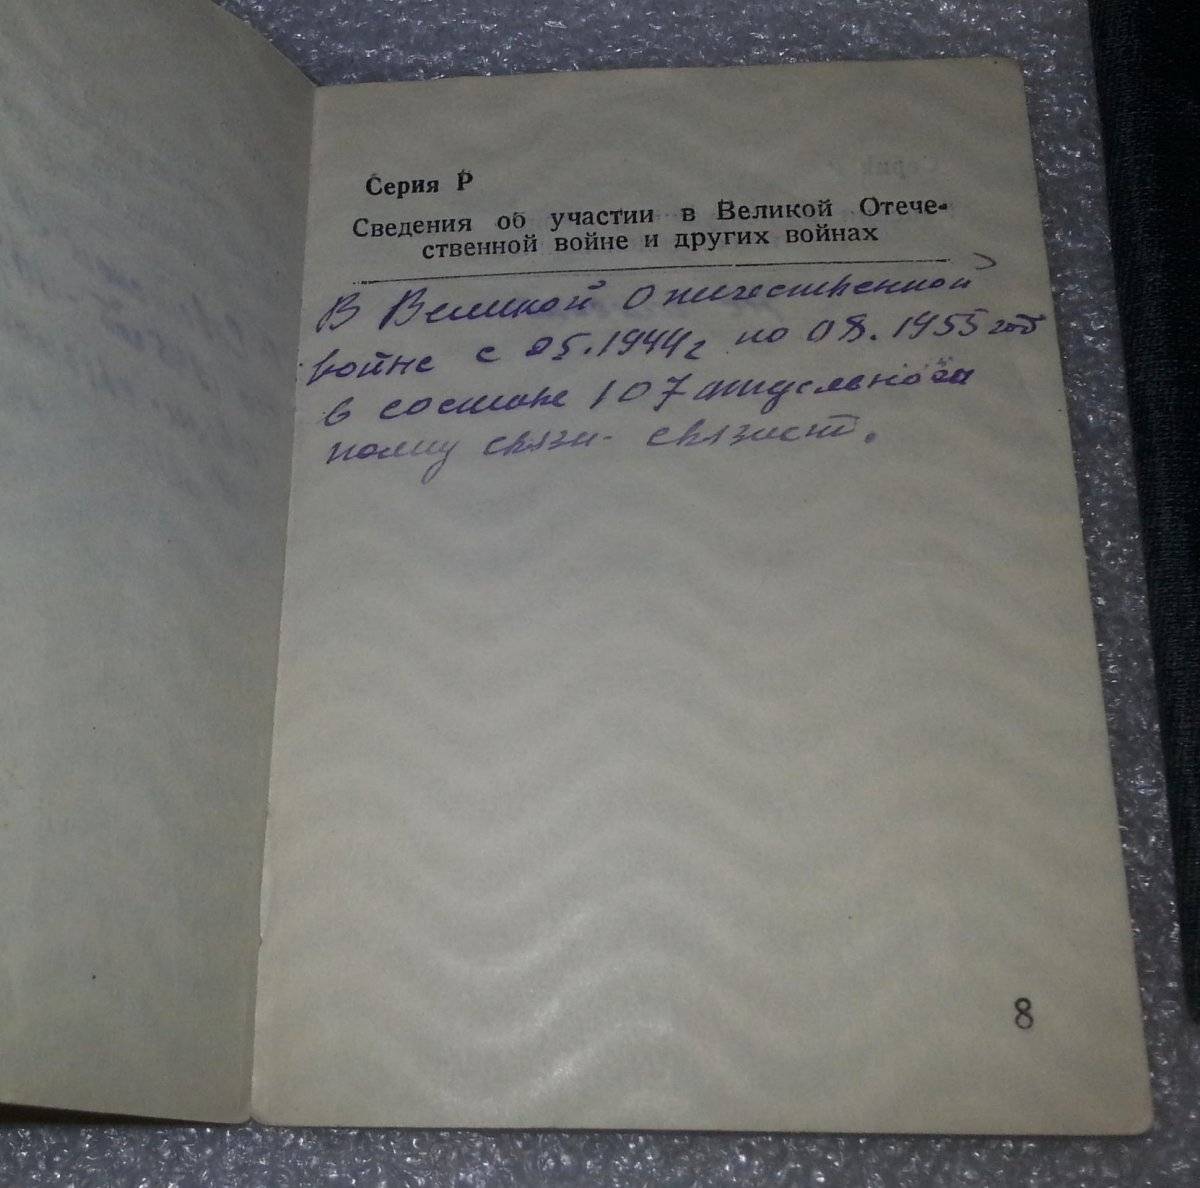 Серия Р
Сведения об участии в Великой Отече-
ственной войне и других войнах
В Великой Отечественной
войне с 05.1944г по 08.1955 год
в составе 107 отдельного
полку связи - связист.
8